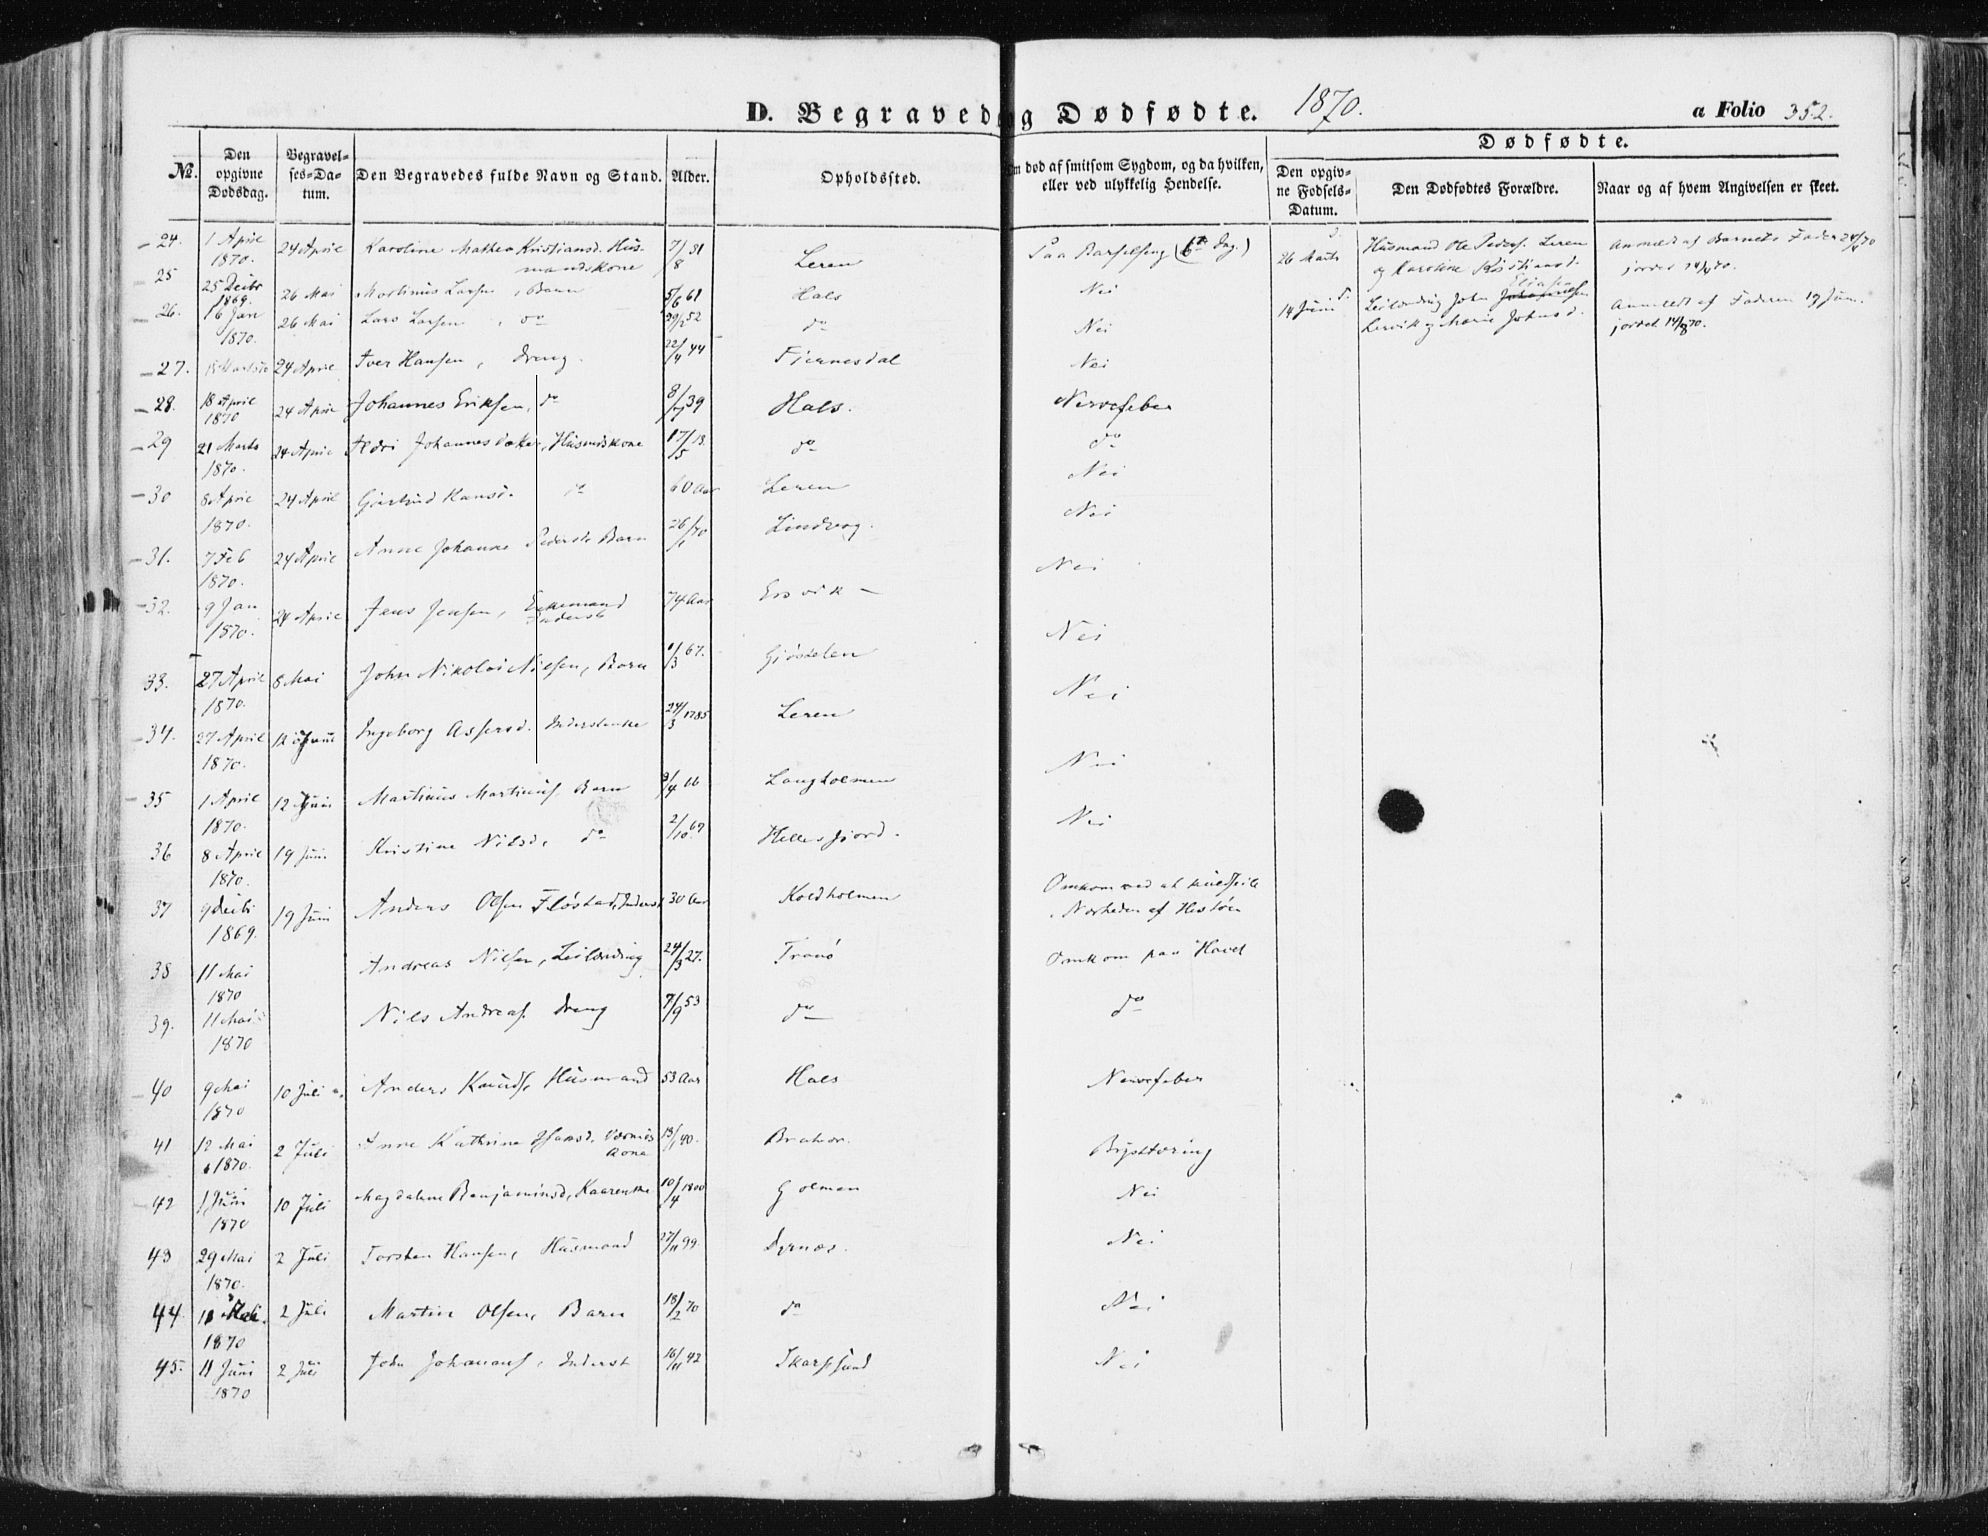 D. Begravede og Dødfødte. 1870. a Folio 352.
Dødfødte.
No. Den opgivne Dødsdag. Begravelses-Datum. Den Begravedes fulde Navn og Stand. Alder. Opholdssted. Om død af smitsom Sygdom, og da hvilken, eller ved ulykkelig Hendelse. Den opgivne Fødsels-Datum. Den Dødfødtes Forældre. Naar og af hvem Angivelsen er skeet.
24. 1 April 1870. 24 April Karoline Mathea Kristiansd. Husmandskone 7/8 31 Leren Paa Barselseng (6te Dag.) 26 Marts Husmand Ole Peders. Leren og Karoline Kristiansd. Anmeldt af Barnets Fader 24/4 70 jordet 24/4 70.
25 25 Decbr 1869. 26 Mai Martinus Larsen, Barn 5/6 61 Hals Nei
14 Juni Leilænding John Johannesen Lervik og Marie Johnsd. Anmeldt af Faderen 19 Juni. jordet
26. 16 Jan 1870. 26 Mai Lars Larsen, do 29/2 52 do Nei
27. 24 April Iver Hansen, Dreng. 22/4 44 Fjernesdal Nei
28. 18 April 1870 24 April Johannes Eriksen, do 8/7 39 Hals. Nervefeber
29 21 Marts 1870. 24 April Johannesdatter, Husmdskone 17/5 13 do do
30 8 April 1870. 24 April Gjertrud Hansd. do 60 Aar Leren Nei
31. 7 Feb 1870. 24 April Anne Johanne Pedersd. Barn 26/1 70 Lindvog. Nei
32. 9 Jan 1870. 24 April Jens Jensen, Enkemand Inderst 74 Aar Ersvik Nei
33. 27 April 1870. 8 Mai John Nikolai Nielsen, Barn /3 67. Gjøstelen Nei
34. 27 April 1870. 12 Juni Ingeborg Assersd. Inderstenke 24/3 1785 Leren Nei
35 1 April 1870. 12 Juni Martinus Martinus. Barn 9/4 66 Langholmen Nei
36 8 April 1870. 19 Juni Kristine Nilsd. do 2/10 69 Hellesfjord. Nei
37 9 Decbr 1869. 19 Juni Anders Olsen Fløstad, Inderst 30 Aar Koldholmen Omkom ved at kuldseile i Nærheden af Hestøen
38 11 Mai 1870 Andreas Nilsen, Leilænding 24/3 27. Tranø Omkom paa Havet
39. 11 Mai 1870 Nils Andreas. Dreng 7/9 53 do do
40 9 Mai 1870 10 Juli Anders Knuds. Husmand 53 Aar Hals Nervefeber
41 12 Mai 1870. 2 Juli Anne Kathrine Hansd. kone 13/1 40. Bratvær. Brysttæring
42 1 Juni 1870 10 Juli Magdalene Benjaminsd, Kaarenke 10/4 1800 Golmen Nei
43 29 Mai 1870. 2 Juli Torsten Hansen, Husmand 27/11 99. Dyrnæs. Nei
44. 18 Mai. 1870 2 Juli Martin Olsen, Barn 18/2 70 do Nei
45. 11 Juni 1870 2 Juli John Johannes. Inderst 16/11 42 Skarpsund Nei